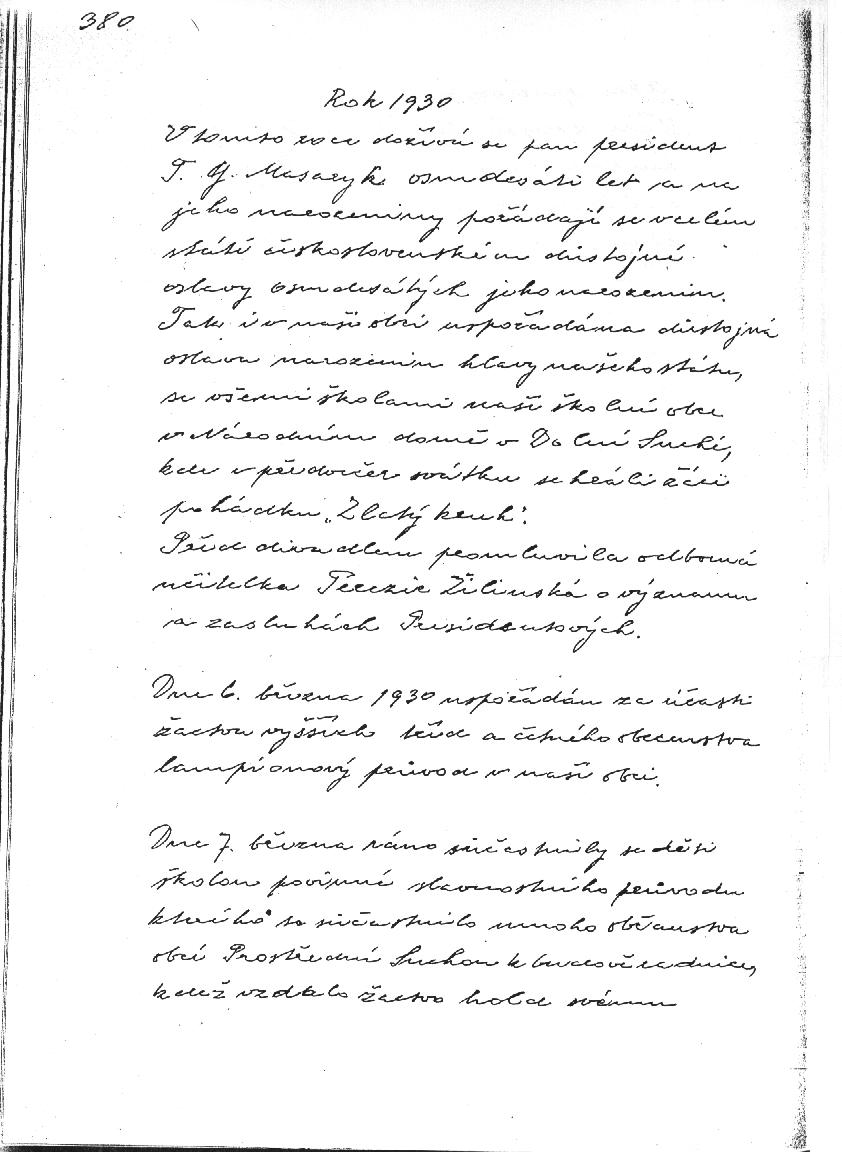 380
Rok 1930
V tomto roce dožívá se pan president
T. G. Masaryk osmdesáti let a na
jeho narozeniny pořádají se v celém
státě československém důstojné
oslavy osmdesátých jeho narozenin.
Tak i v naší obci uspořádána důstojná
oslava narozenin hlavy našeho státu,
se všemi školami naší školní obce
v Národním domě v Dolní Suché,
kde v předvečer svátku sehráli žáci
pohádku „Zlatý kruh".
Před divadlem promluvila odborná
učitelka Terezie Žilinská o významu
a zásluhách Presidentových.
Dne 6. března 1930 uspořádán za účasti
žactva vyšších tříd a četného obecenstva
lampionový průvod v naší obci.
Dne 7. března ráno súčastnily se děti
školou povinné slavnostního průvodu
kterého se súčastnilo mnoho občanstva
obcí Prostřední Suchou k budově radnice,
kdež vzdalo žactvo hold svému